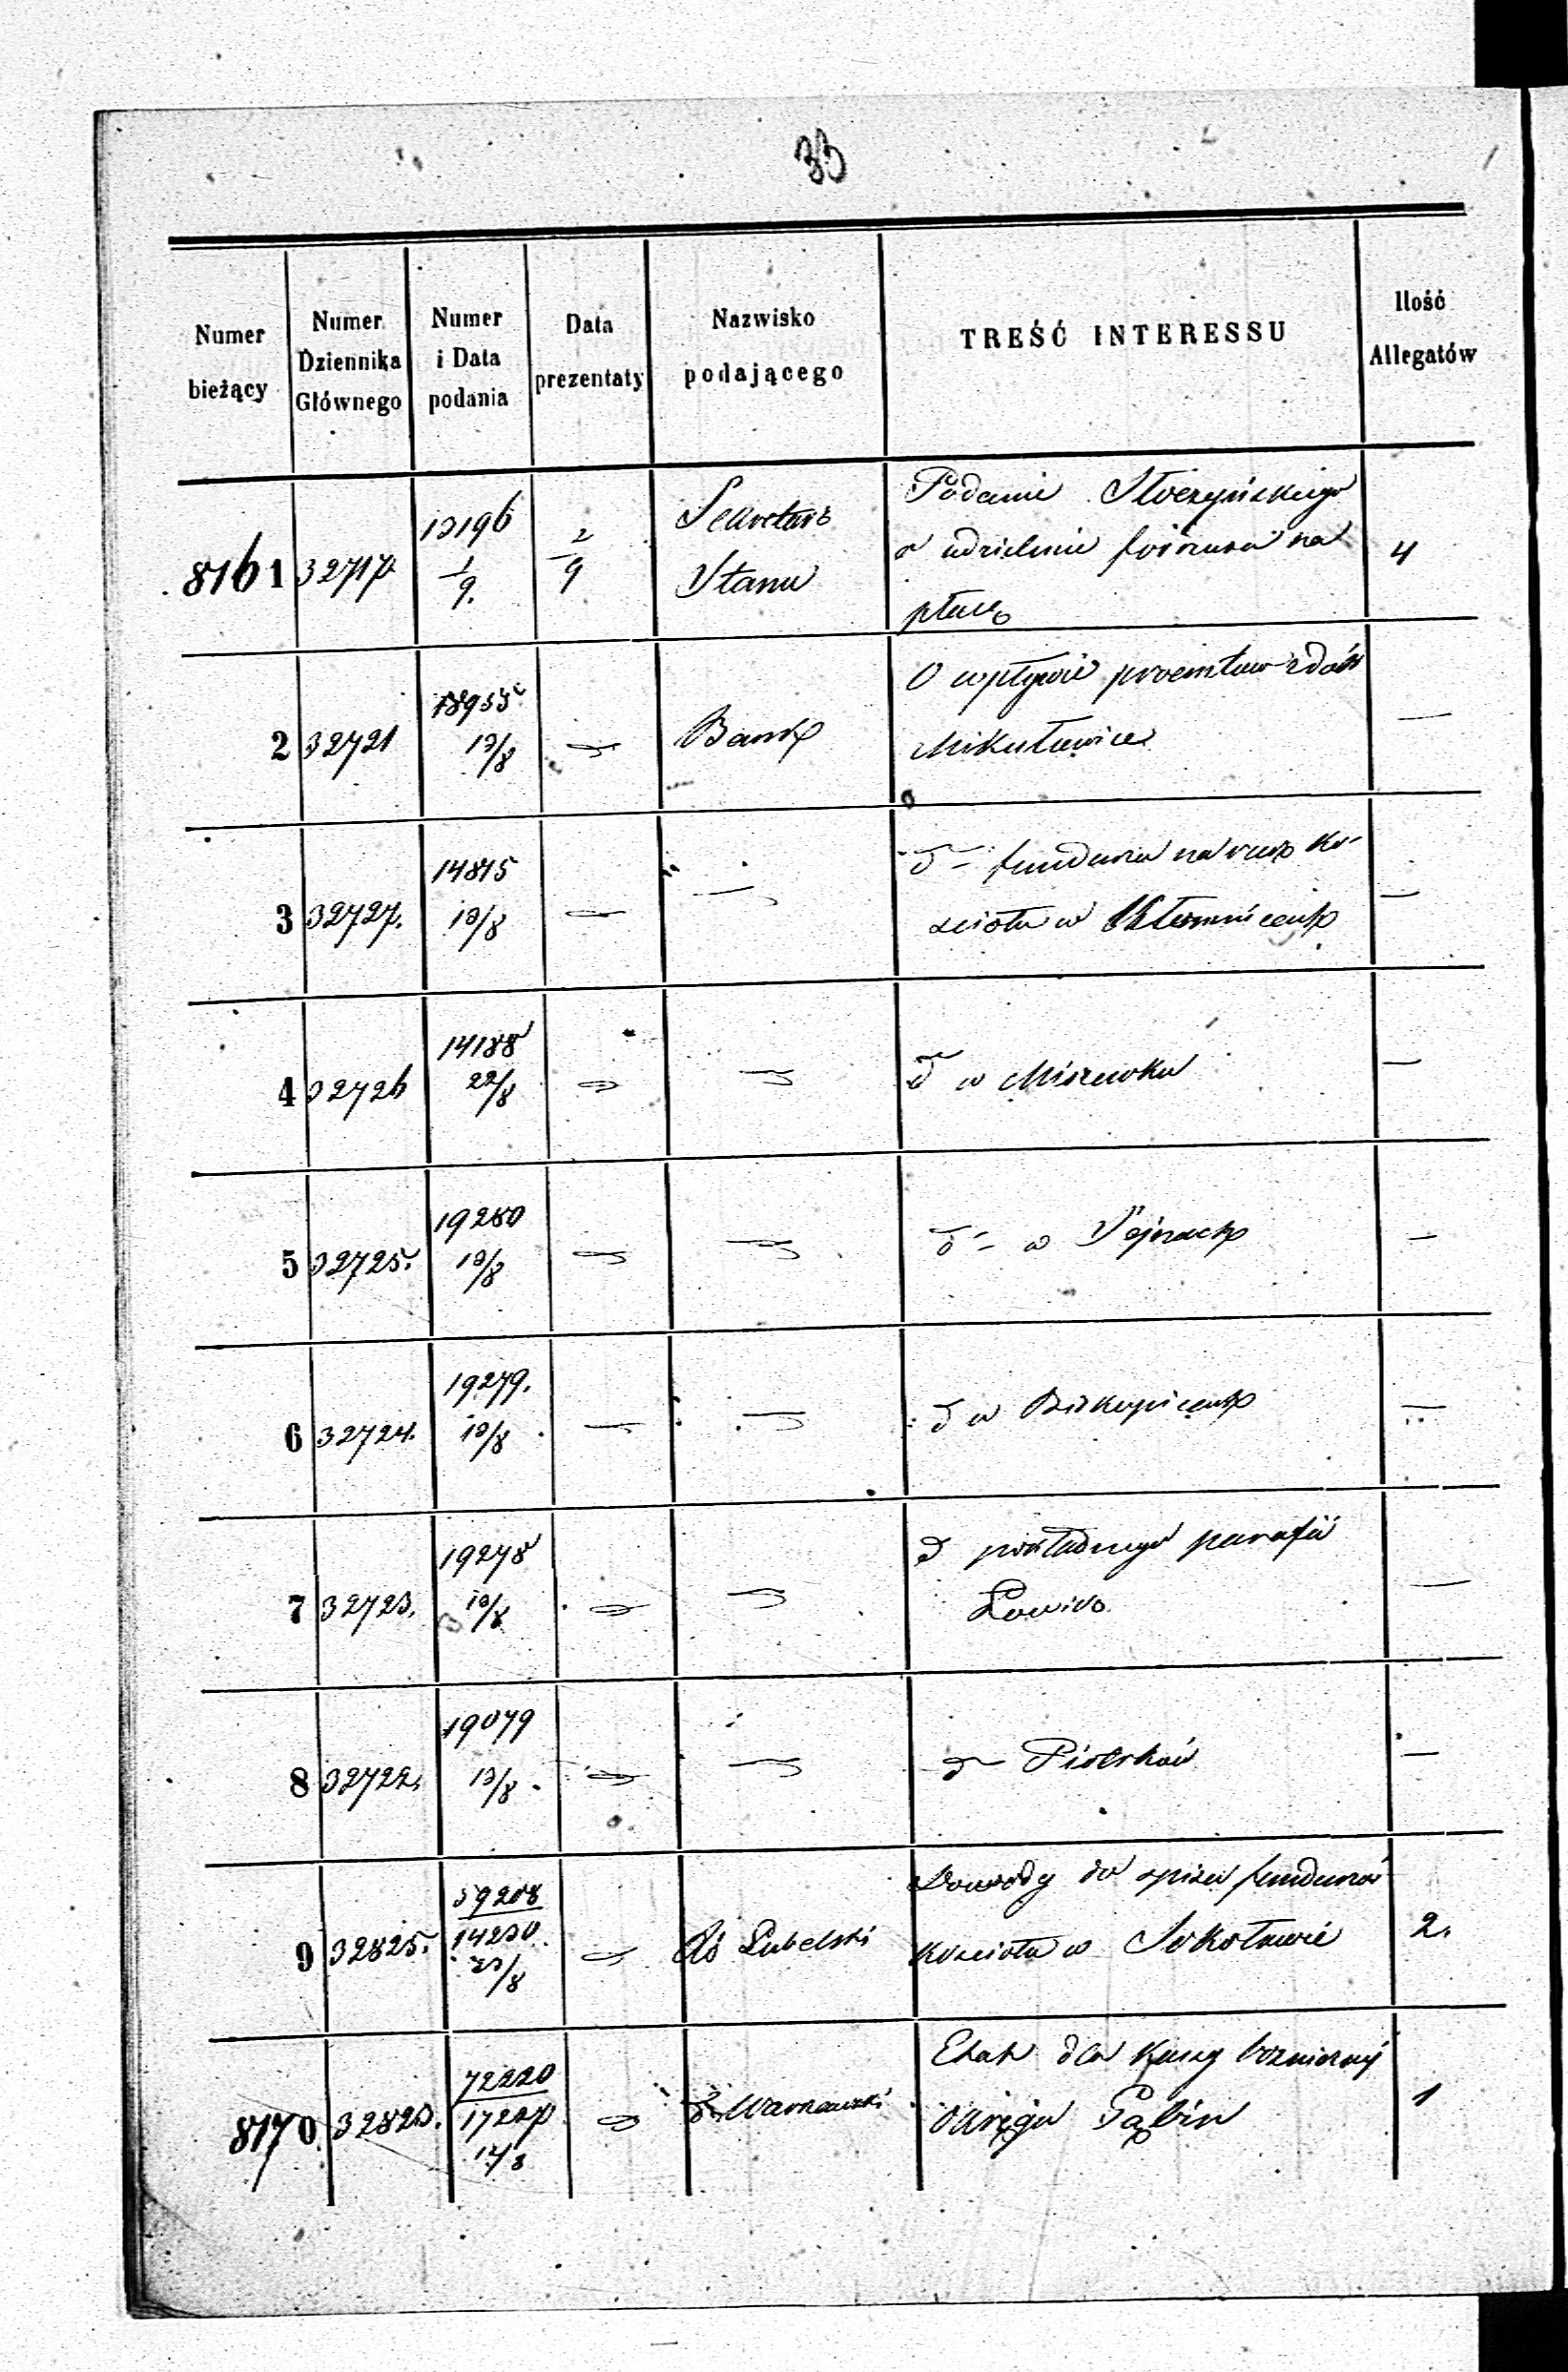 33
Numer bieżący
Numer Dziennika Głównego
Numer i Data podania
Data prezentaty
Nazwisko podającego
TREŚĆ INTERESSU
Ilość Allegatów
8161 32717 13196 1/9. 2/9 Sekretarz Stanu
Podanie
o udzielenie na
płacę
4
2 32721 18955 13/8 Bank
O wpływie procentów z dóbr
Mikułowice
—
3 32727. 14815 13/8
d° funduszu na rzecz ko-
ścioła w
—
4 32726 14188 22/8
d° w Miszewku
—
5 32725. 19280 13/8
d° w
—
6 32724. 19279. 13/8
d° w Biskupicach
—
7 32723. 19278 13/8
d° parafii
Łowicz
—
8 32722. 19079 13/8
d° Piotrków
—
9 32825. 59208 / 14230 23/8 Lubelski
Dowody do spisu funduszów
kościoła w Sokołowie
2.
8170 32823. 72220 / 17227 12/8 Warszawski
Etat dla Kassy bożniczej
Okręgu Gąbin
1